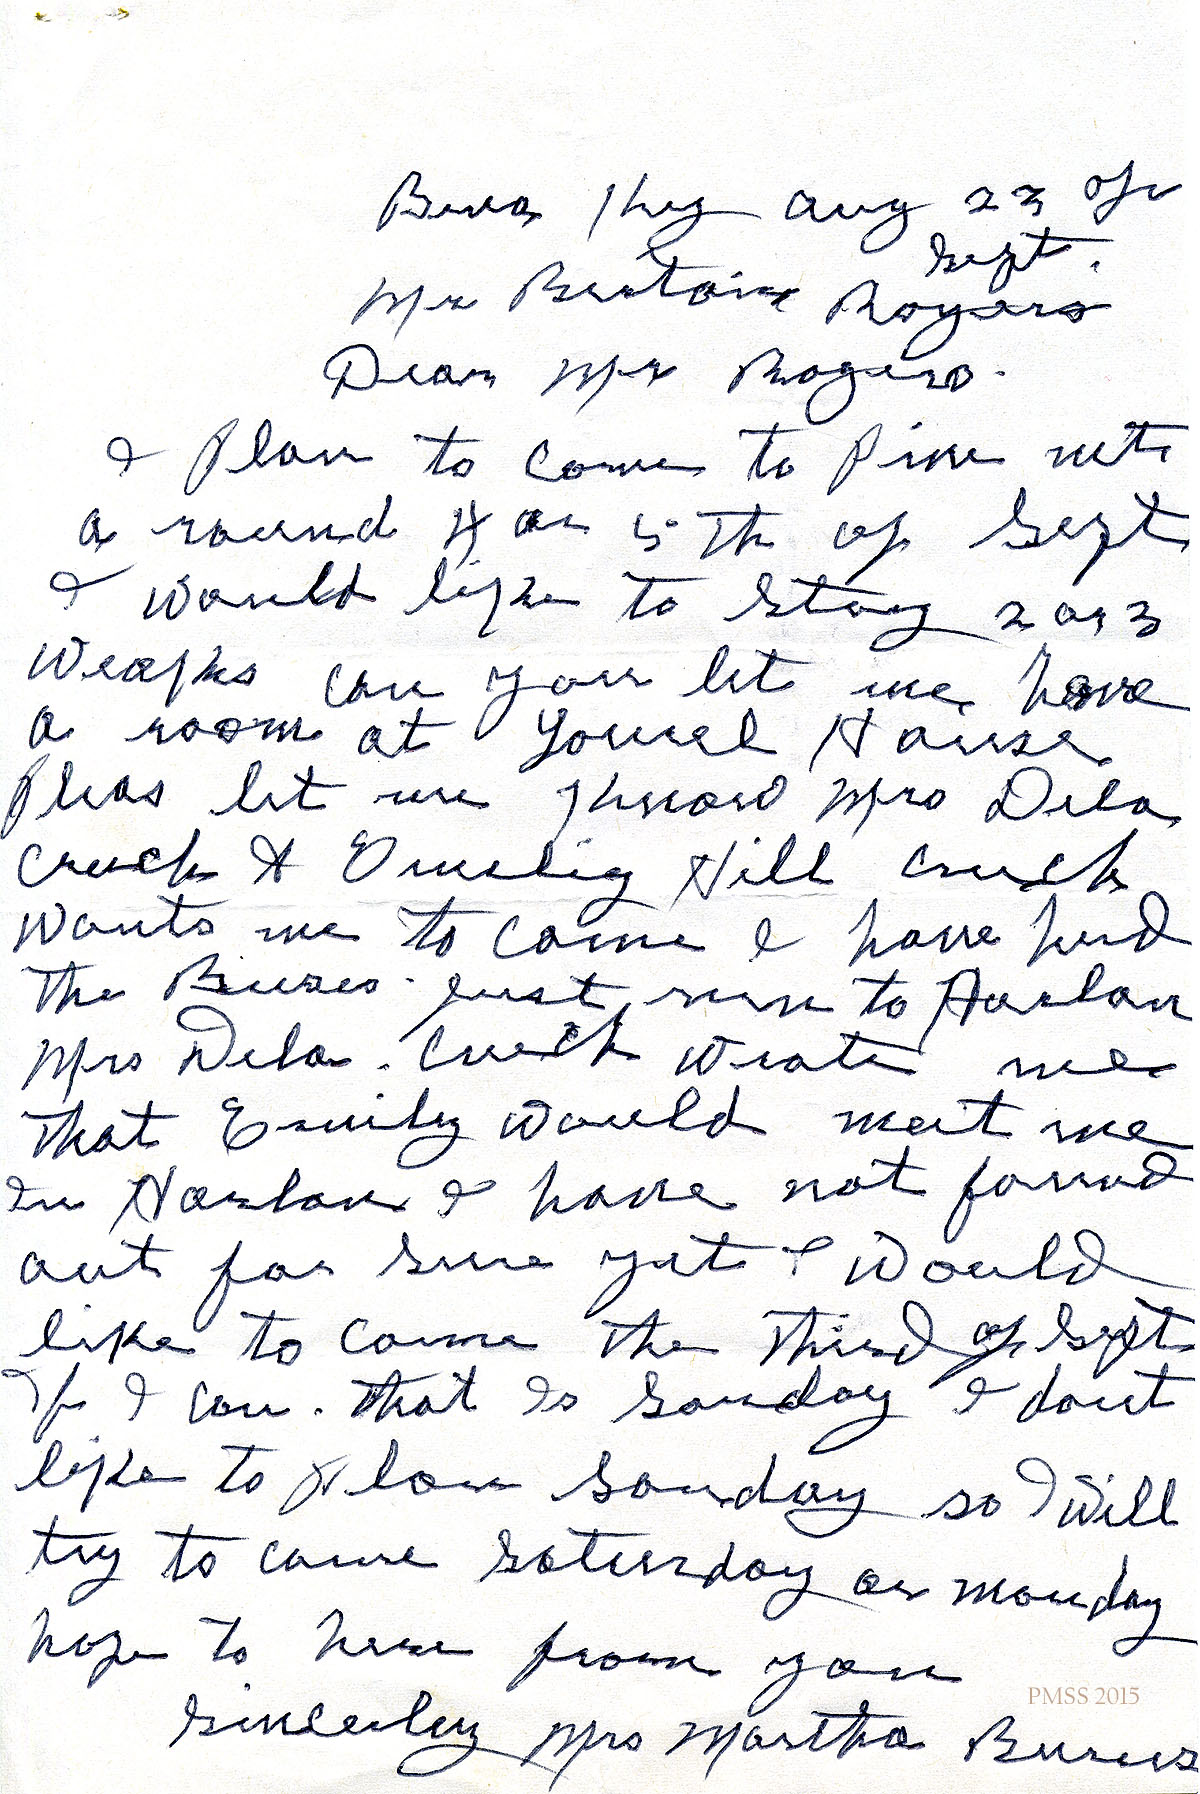 Berea Ky Aug 23 of
Sept.
Mr Burton Rogers
Dear Mr Rogers.
I Plan to come to Pine mt
a round 4 or 5 th of Sept
I would like to stay 2 or 3
weaks can you let me have
a room at Lourel House
Pleas let me know Mrs Dela
Creech & Emeliy Hill Creech
wants me to come I have herd
the Buses just run to Harlan
Mrs Dela. Creech wrote me
that Emily would meet me
in Harlan I have not found
out for sure yet I would
like to come the Third of Sept
If I can. that is Sunday I dont
like to plan Sunday so I will
try to come Saturday or monday
hope to here from you
PMSS 2015
Sincerley Mrs Martha Burns